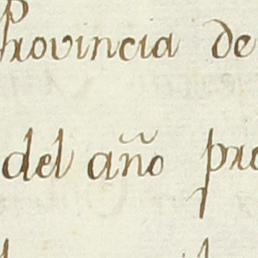 Provincia de
del año pro